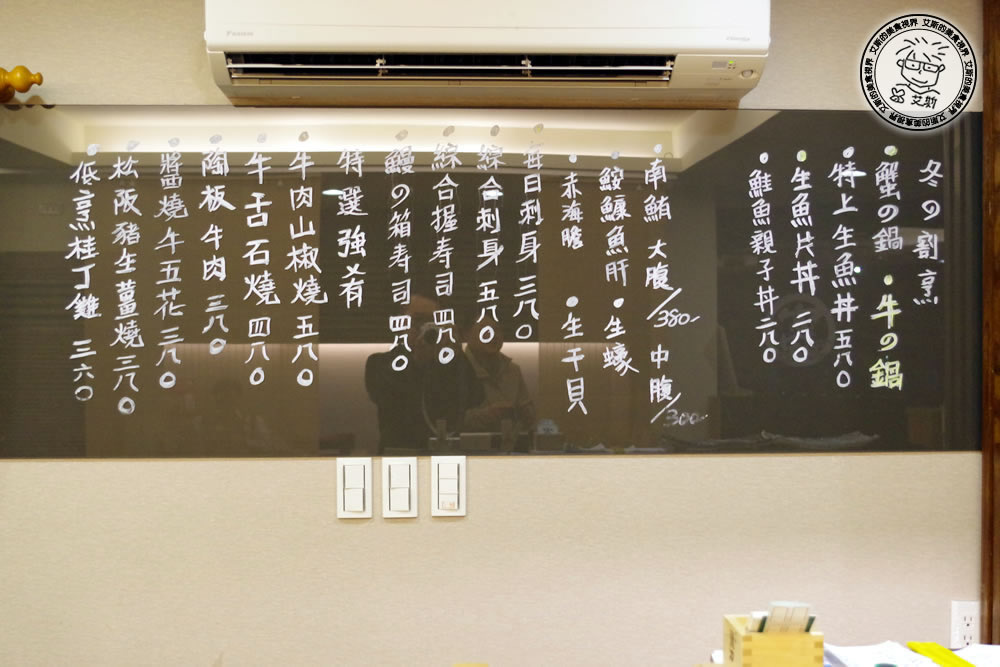 冬の割烹
・蟹の鍋 ・牛の鍋
・特上生魚丼 五八〇
・生魚片丼 二八〇
・鮭魚親子丼 二八〇
・南鮪 大腹/380- 中腹/300-
鮟鱇魚肝 ・生蠔
・赤海膽 ・生干貝
・每日刺身 三八〇
・綜合刺身 五八〇
・綜合握寿司 四八〇
・鰻の箱寿司 四八〇
・特選強肴
・牛肉山椒燒 五八〇
・牛舌石燒 四八〇
・陶板牛肉 三八〇
・醬燒牛五花 三八〇
・松阪豬生薑燒 三八〇
・低烹桂丁雞 三六〇
DAIKIN
艾斯的美食視界 艾斯的美食視界 艾斯的美食視界 艾斯的美食視界
艾斯